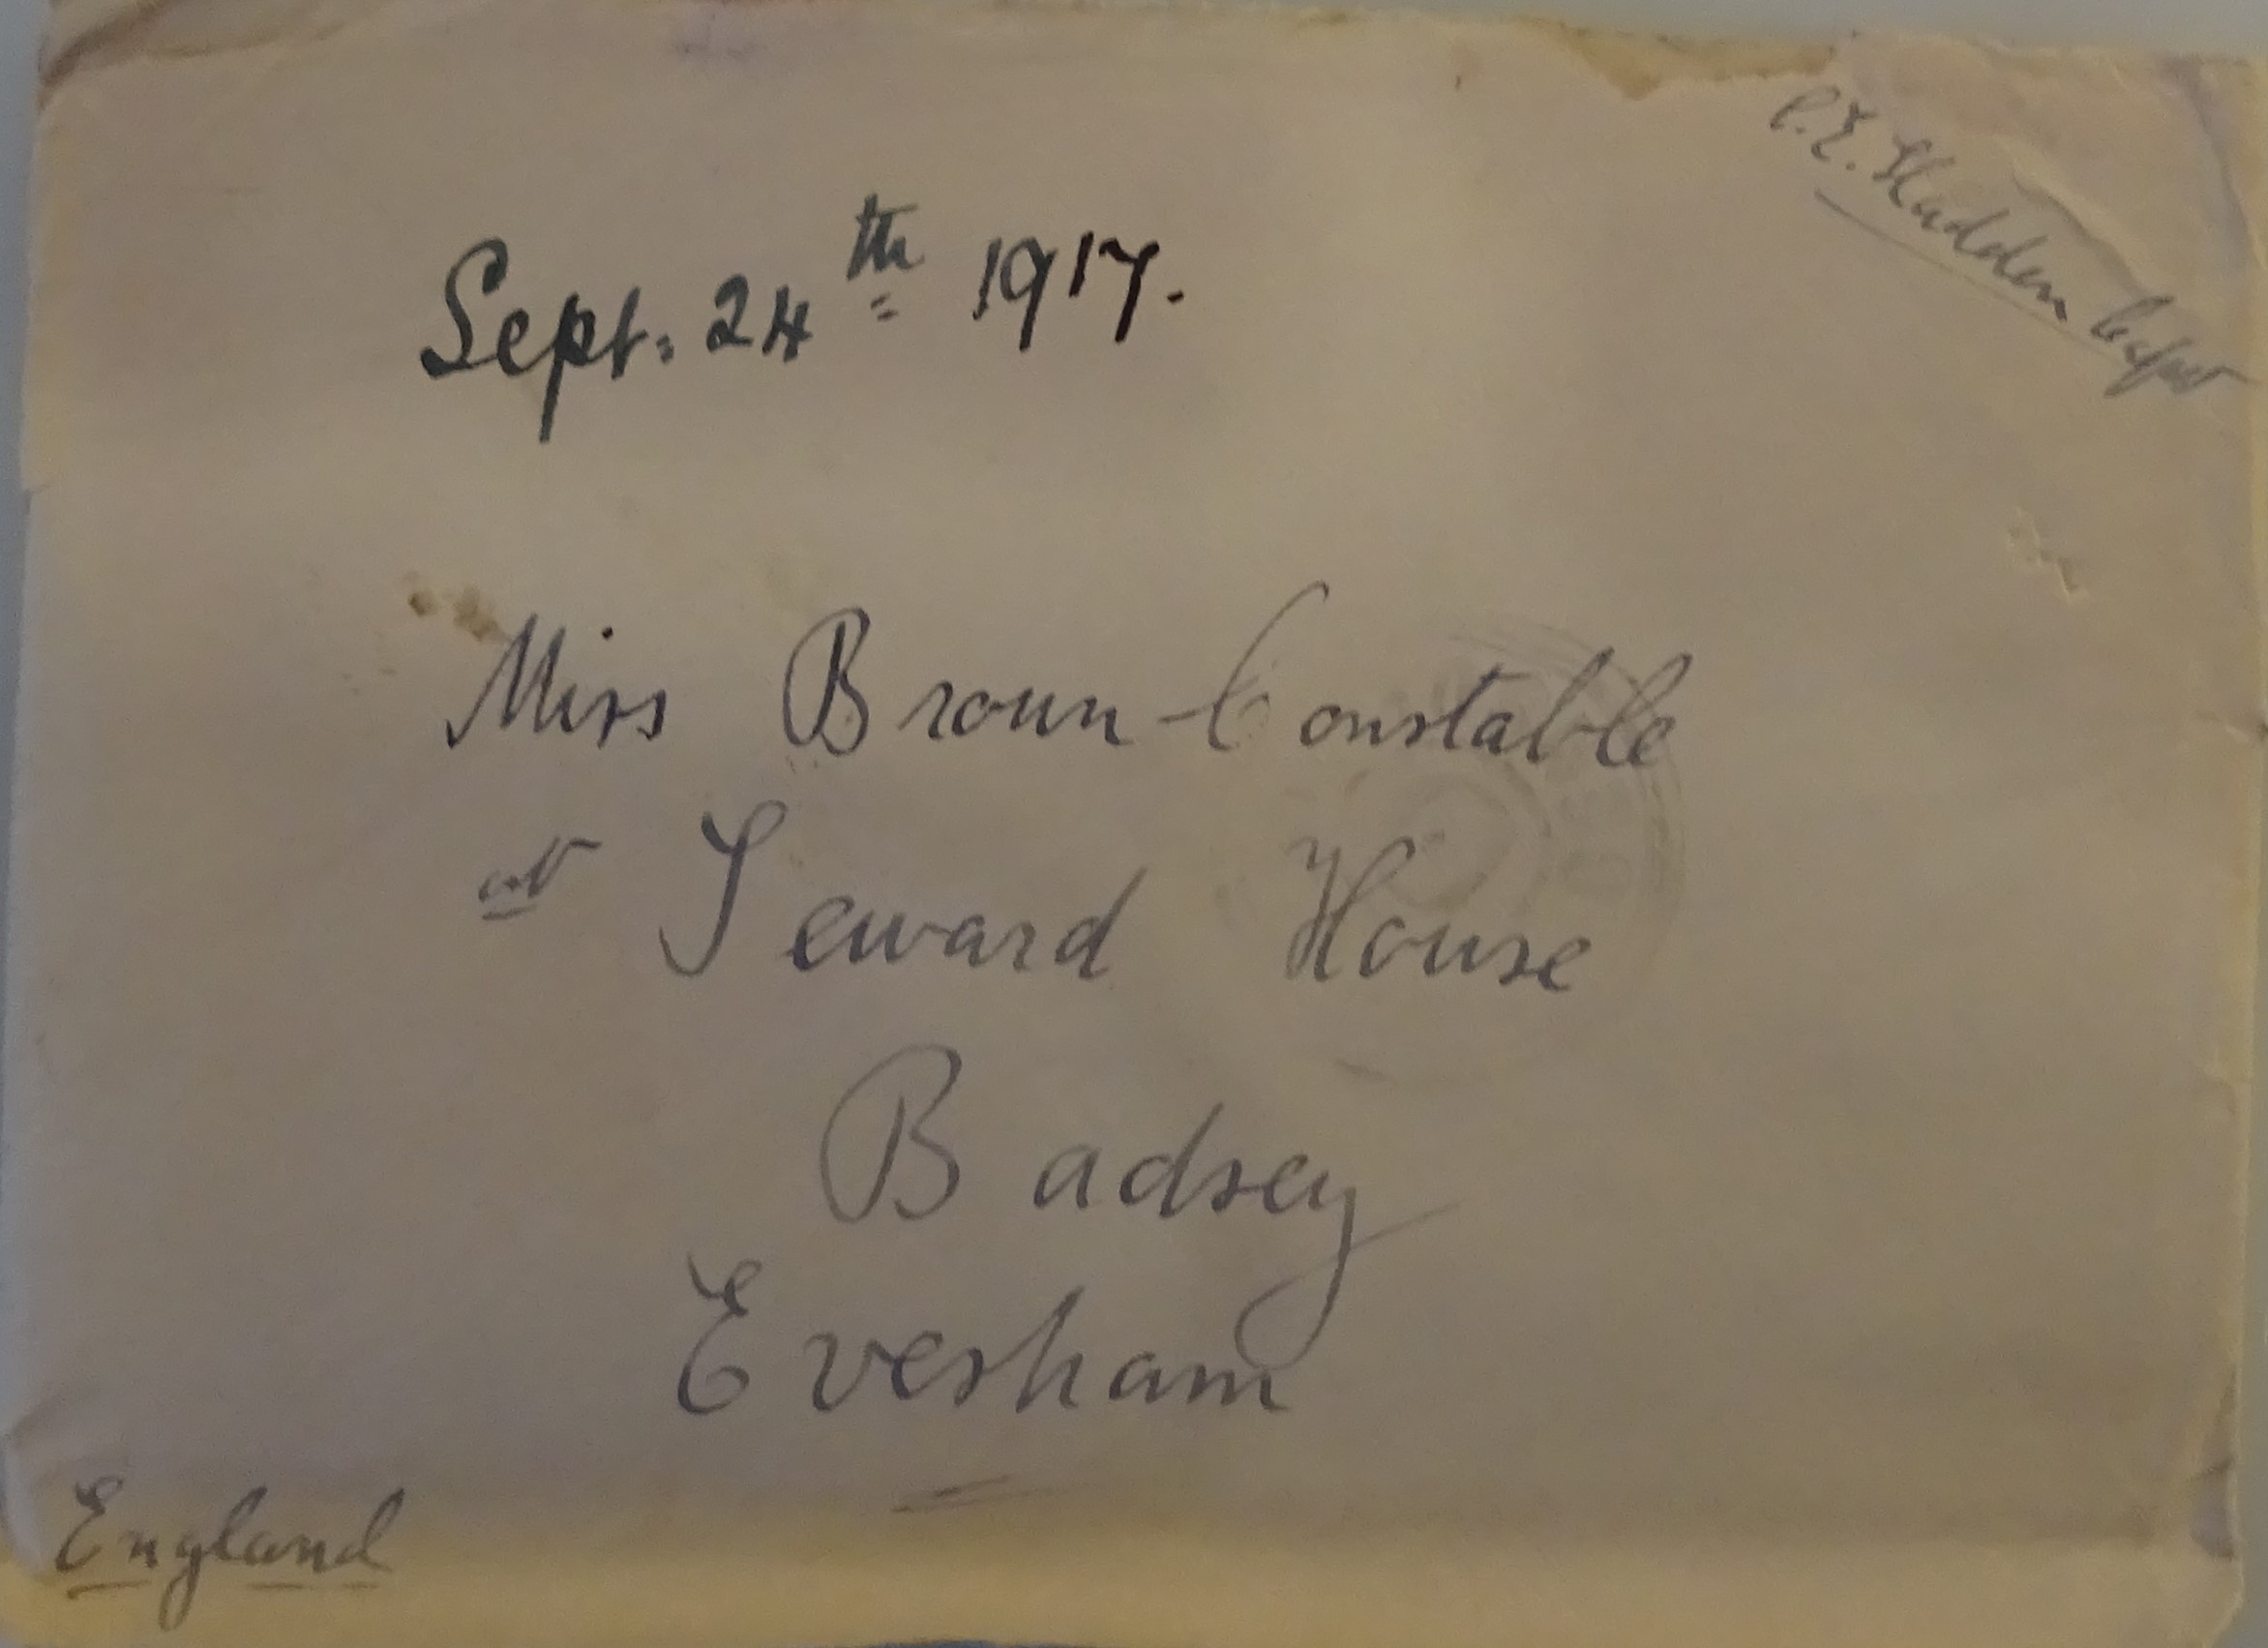 C.E. Sladden Capt
Sept. 24th 1917.
Miss Broun-Constable
at Seward House
Badsey
Evesham
England